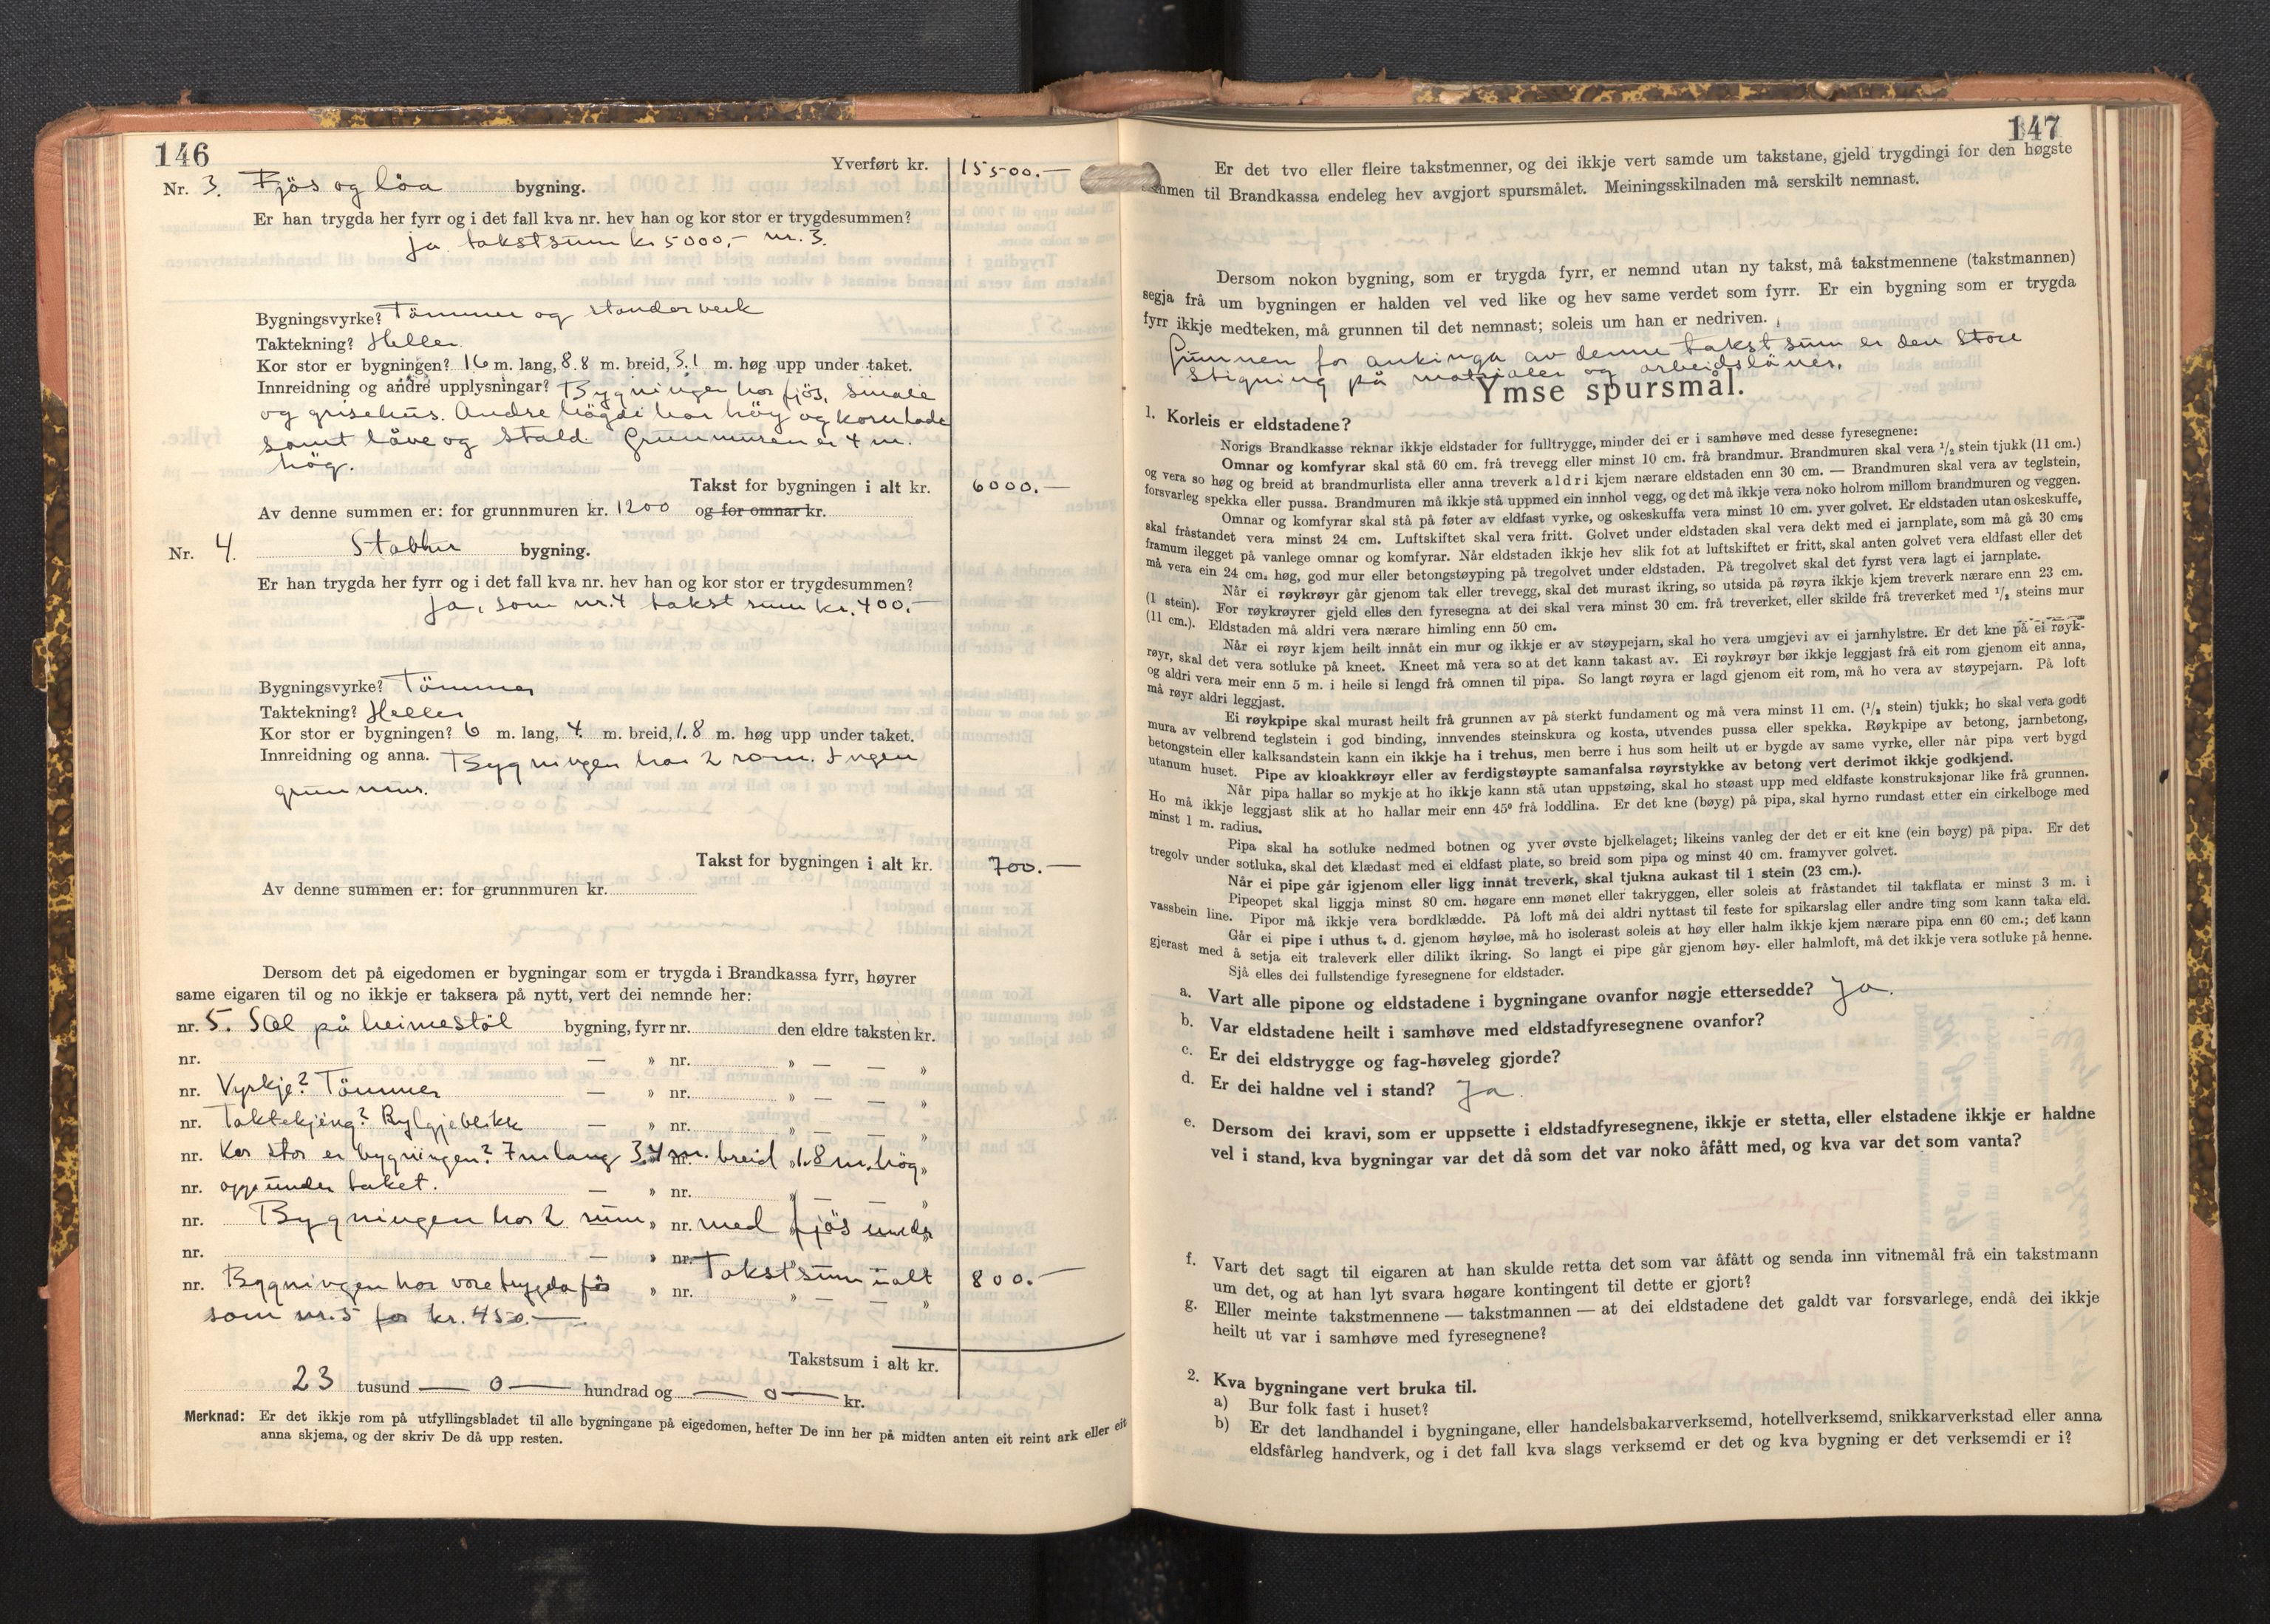 146
Yverført kr. 15500.—
Nr. 3. Fjös og löa bygning.
Er han trygda her fyrr og i det fall kva nr. hev han og kor stor er trygdesummen?
ja takstsum kr 5000,- nr. 3.
Bygningsvyrke? Tömmer og standerverk
Taktekning? Heller.
Kor stor er bygningen? 16 m. lang, 8.8 m. breid, 3.1 m. høg upp under taket.
Innreidning og andre upplysningar? Bygningen har fjös, smale
og grisehus. Andre högdi har höy og kornlade
samt låve og stald. Grunnmuren er 4 m.
hög.
Takst for bygningen i alt kr. 6000.—
Av denne summen er: for grunnmuren kr. 1200 og for omnar kr.
Nr. 4. Stabbur bygning.
Er han trygda her fyrr og i det fall kva nr. hev han og kor stor er trygdesummen?
ja, som nr. 4 takst sum kr. 400.-
Bygningsvyrke? Tömmer
Taktekning? Heller
Kor stor er bygningen? 6 m. lang, 4. m. breid, 1.8 m. høg upp under taket.
Innreidning og anna. Bygningen har 2 rom. Ingen
grunnmur.
Takst for bygningen i alt kr. 700.—
Av denne summen er: for grunnmuren kr.
Dersom det på eigedomen er bygningar som er trygda i Brandkassa fyrr, høyrer
same eigaren til og no ikkje er taksera på nytt, vert dei nemnde her:
nr. 5. Sæl på heimestöl bygning, fyrr nr. den eldre taksten kr.
nr. — » nr. » — — »
nr. Vyrkje? Tömmer — » nr. » — — »
nr. Taktekjing? Bylgjeblikk — » nr. » — — »
nr. Kor stor er bygningen? 7 m lang 3.4 m. nr. breid » 1.8 m. hög »
nr. opp under taket. — » nr. » — — »
nr. Bygningen har 2 rum » nr. med fjös under »
nr. — » nr. Takst sum i alt
nr. Bygningen har vore trygda för » nr. » — — » 800.—
som nr. 5 for kr. 450.—
Takstsum i alt kr.
23 tusund — 0 — hundrad og — 0 — kr.
Merknad: Er det ikkje rom på utfyllingsbladet til alle bygningane på eigedomen, hefter De inn her på midten anten eit reint ark eller eit
anna skjema, og der skriv De då upp resten.
147
Er det tvo eller fleire takstmenner, og dei ikkje vert samde um takstane, gjeld trygdingi for den høgste
summen til Brandkassa endeleg hev avgjort spursmålet. Meiningsskilnaden må serskilt nemnast.
Dersom nokon bygning, som er trygda fyrr, er nemnd utan ny takst, må takstmennene (takstmannen)
segja frå um bygningen er halden vel ved like og hev same verdet som fyrr. Er ein bygning som er trygda
fyrr ikkje medteken, må grunnen til det nemnast; soleis um han er nedriven.
Grunnen for aukinga av denne takst sum er den store
stigning på matrialer og arbeidslöner.
Ymse spursmål.
1. Korleis er eldstadene?
Norigs Brandkasse reknar ikkje eldstader for fulltrygge, minder dei er i samhøve med desse fyresegnene:
Omnar og komfyrar skal stå 60 cm. frå trevegg eller minst 10 cm. frå brandmur. Brandmuren skal vera 1/2 stein tjukk (11 cm.)
og vera so høg og breid at brandmurlista eller anna treverk aldri kjem nærare eldstaden enn 30 cm. — Brandmuren skal vera av teglstein,
forsvarleg spekka eller pussa. Brandmuren må ikkje stå uppmed ein innhol vegg, og det må ikkje vera noko holrom millom brandmuren og veggen.
Omnar og komfyrar skal stå på føter av eldfast vyrke, og oskeskuffa vera minst 10 cm. yver golvet. Er eldstaden utan oskeskuffe,
skal fråstandet vera minst 24 cm. Luftskiftet skal vera fritt. Golvet under eldstaden skal vera dekt med ei jarnplate, som må gå 30 cm.
framum ilegget på vanlege omnar og komfyrar. Når eldstaden ikkje hev slik fot at luftskiftet er fritt, skal anten golvet vera eldfast eller det
må vera ein 24 cm. høg, god mur eller betongstøyping på tregolvet under eldstaden. På tregolvet skal det fyrst vera lagt ei jarnplate.
Når ei røykrøyr går gjenom tak eller trevegg, skal det murast ikring, so utsida på røyra ikkje kjem treverk nærare enn 23 cm.
(1 stein). For røykrøyrer gjeld elles den fyresegna at dei skal vera minst 30 cm. frå treverket, eller skilde frå treverket med 1/2 steins mur
(11 cm.). Eldstaden må aldri vera nærare himling enn 50 cm.
Når ei røyr kjem heilt innåt ein mur og ikkje er av støypejarn, skal ho vera umgjevi av ei jarnhylstre. Er det kne på ei røyk-
røyr, skal det vera sotluke på kneet. Kneet må vera so at det kann takast av. Ei røykrøyr bør ikkje leggjast frå eit rom gjenom eit anna,
og aldri vera meir enn 5 m. i heile si lengd frå omnen til pipa. So langt røyra er lagd gjenom eit rom, må ho vera av støypejarn. På loft
må røyr aldri leggjast.
Ei røykpipe skal murast heilt frå grunnen av på sterkt fundament og må vera minst 11 cm. (1/2 stein) tjukk; ho skal vera godt
mura av velbrend teglstein i god binding, innvendes steinskura og kosta, utvendes pussa eller spekka. Røykpipe av betong, jarnbetong,
betongstein eller kalksandstein kann ein ikkje ha i trehus, men berre i hus som heilt ut er bygde av same vyrke, eller når pipa vert bygd
utanum huset. Pipe av kloakkrøyr eller av ferdigstøypte samanfalsa røyrstykke av betong vert derimot ikkje godkjend.
Når pipa hallar so mykje at ho ikkje kann stå utan uppstøing, skal ho støast upp med eldfaste konstruksjonar like frå grunnen.
Ho må ikkje leggjast slik at ho hallar meir enn 45° frå loddlina. Er det kne (bøyg) på pipa, skal hyrno rundast etter ein cirkelboge med
minst 1 m. radius.
Pipa skal ha sotluke nedmed botnen og yver øvste bjelkelaget; likeins vanleg der det er eit kne (ein bøyg) på pipa. Er det
tregolv under sotluka, skal det klædast med ei eldfast plate, so breid som pipa og minst 40 cm. framyver golvet.
Når ei pipe går igjenom eller ligg innåt treverk, skal tjukna aukast til 1 stein (23 cm.).
Pipeopet skal liggja minst 80 cm. høgare enn mønet eller takryggen, eller soleis at fråstandet til takflata er minst 3 m. i
vassbein line. Pipor må ikkje vera bordklædde. På loft må dei aldri nyttast til feste for spikarslag eller andre ting som kann taka eld.
Går ei pipe i uthus t. d. gjenom høyløe, må ho isolerast soleis at høy eller halm ikkje kjem nærare pipa enn 60 cm.; det kann
gjerast med å setja eit traleverk eller dilikt ikring. So langt ei pipe går gjenom høy- eller halmloft, må det ikkje vera sotluke på henne.
Sjå elles dei fullstendige fyresegnene for eldstader.
a. Vart alle pipone og eldstadene i bygningane ovanfor nøgje ettersedde? Ja.
b. Var eldstadene heilt i samhøve med eldstadfyresegnene ovanfor?
c. Er dei eldstrygge og fag-høveleg gjorde?
d. Er dei haldne vel i stand? Ja.
e. Dersom dei kravi, som er uppsette i eldstadfyresegnene, ikkje er stetta, eller elstadene ikkje er haldne
vel i stand, kva bygningar var det då som det var noko åfått med, og kva var det som vanta?
f. Vart det sagt til eigaren at han skulde retta det som var åfått og senda inn vitnemål frå ein takstmann
um det, og at han lyt svara høgare kontingent til dette er gjort?
g. Eller meinte takstmennene — takstmannen — at dei eldstadene det galdt var forsvarlege, endå dei ikkje
heilt ut var i samhøve med fyresegnene?
2. Kva bygningane vert bruka til.
a) Bur folk fast i huset?
b) Er det landhandel i bygningane, eller handelsbakarverksemd, hotellverksemd, snikkarverkstad eller anna
eldsfårleg handverk, og i det fall kva slags verksemd er det og kva bygning er det verksemdi er i?